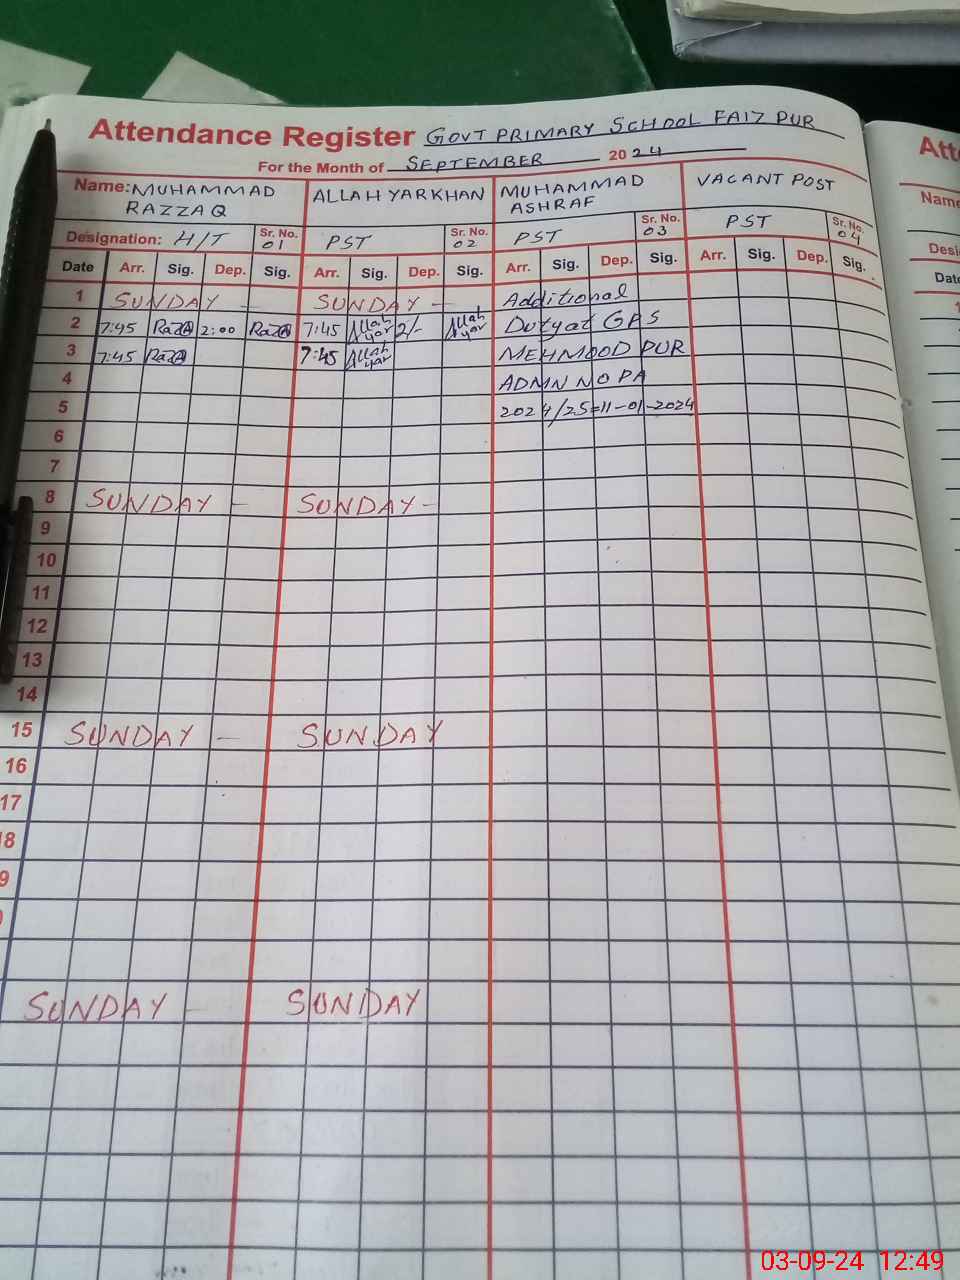 Attendance Register GOVT PRIMARY SCHOOL FAIZ PUR
For the Month of SEPTEMBER 2024
Name: MUHAMMAD RAZZAQ ALLAH YAR KHAN MUHAMMAD ASHRAF VACANT POST
Designation: H/T Sr. No. 01 PST Sr. No. 02 PST Sr. No. 03 PST Sr. No. 04
Date Arr. Sig. Dep. Sig. Arr. Sig. Dep. Sig. Arr. Sig. Dep. Sig. Arr. Sig. Dep. Sig.
1 SUNDAY — SUNDAY — Additional
2 7:45 2:00 7:45 Allah yar 2/- Allah yar Duty at GPS
3 7:45 7:45 Allah yar MEHMOOD PUR
4 ADMN NO PA
5 2024/25=11-01-2024
6
7
8 SUNDAY — SUNDAY —
9
10
11
12
13
14
15 SUNDAY — SUNDAY
16
17
18
9
SUNDAY — SUNDAY
Att
Name
Desi
Dat
03-09-24 12:49